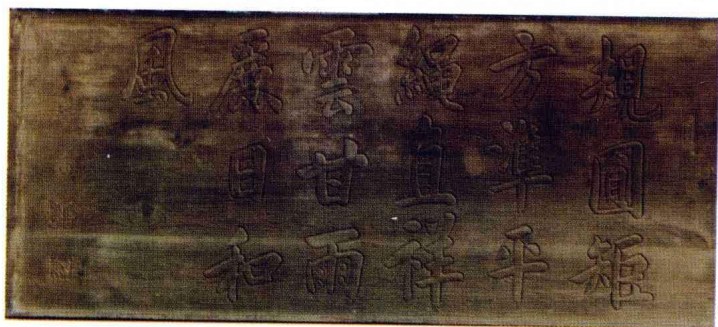 規圓矩
方準平
繩直祥
雲甘雨
麗日和
風